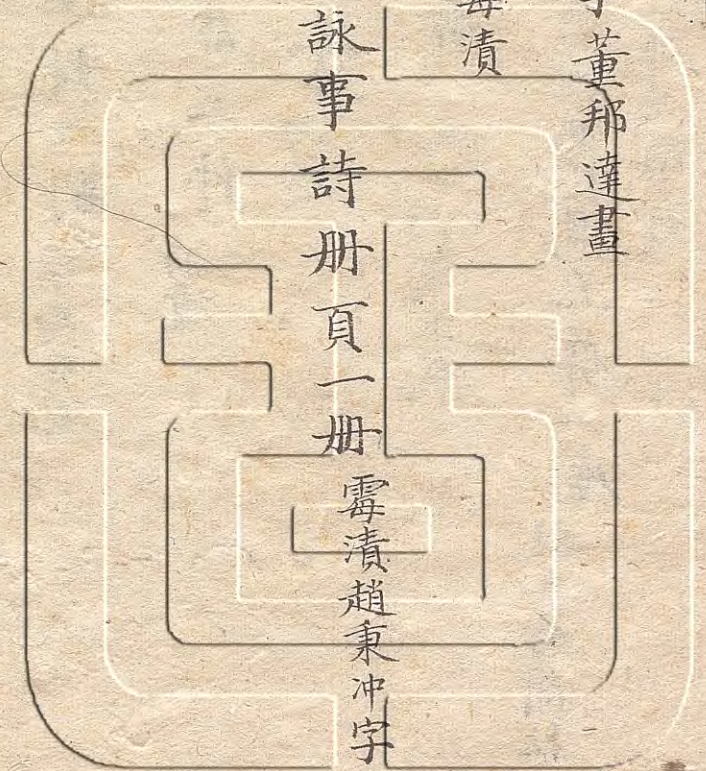 董邦達畫
漬
詠事詩册頁一册霉漬趙秉冲字